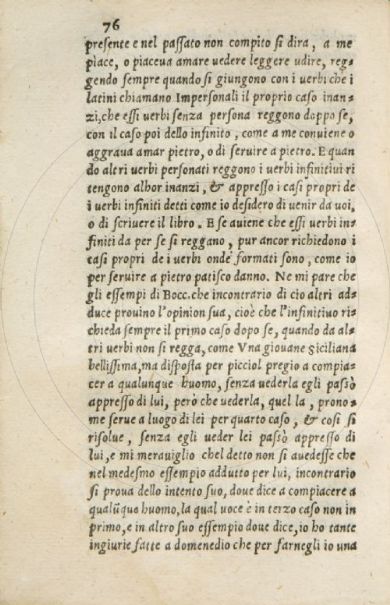 76
presente e nel passato non compito si dira, a me
piace, o piaceua amare uedere leggere udire, reg-
gendo sempre quando si giungono con i uerbi che i
latini chiamano Impersonali il proprio caso inan-
zi, che essi uerbi senza persona reggono doppo se,
con il caso poi dello infinito, come a me conuiene o
aggraua amar pietro, o di seruire a pietro. E quan
do altri uerbi personati reggono i uerbi infinitiui ri
tengono alhor inanzi, & appresso i casi propri de
i uerbi infiniti detti come io desidero di uenir da uoi,
o di scriuere il libro. E se auiene che essi uerbi in-
finiti da per se si reggano, pur ancor richiedono i
casi propri de i uerbi onde formati sono, come io
per seruire a pietro patisco danno. Ne mi pare che
gli essempi di Bocc. che incontrario di cio altri ad-
duce prouino l'opinion sua, cioè che l'infinitiuo ri-
chieda sempre il primo caso dopo se, quando da al-
tri uerbi non si regga, come Vna giouane Siciliana
bellissima, ma disposta per picciol pregio a compia-
cer a qualunque huomo, senza uederla egli passò
appresso di lui, però che uederla, quel la, prono-
me serue a luogo di lei per quarto caso, & cosi si
risolue, senza egli ueder lei passò appresso di
lui, e mi merauiglio chel detto non si auedesse che
nel medesmo essempio addutto per lui, incontrario
si proua dello intento suo, doue dice a compiacere a
qualūque huomo, la qual uoce è in terzo caso non in
primo, e in altro suo essempio doue dice, io ho tante
ingiurie fatte a domenedio che per farnegli io una